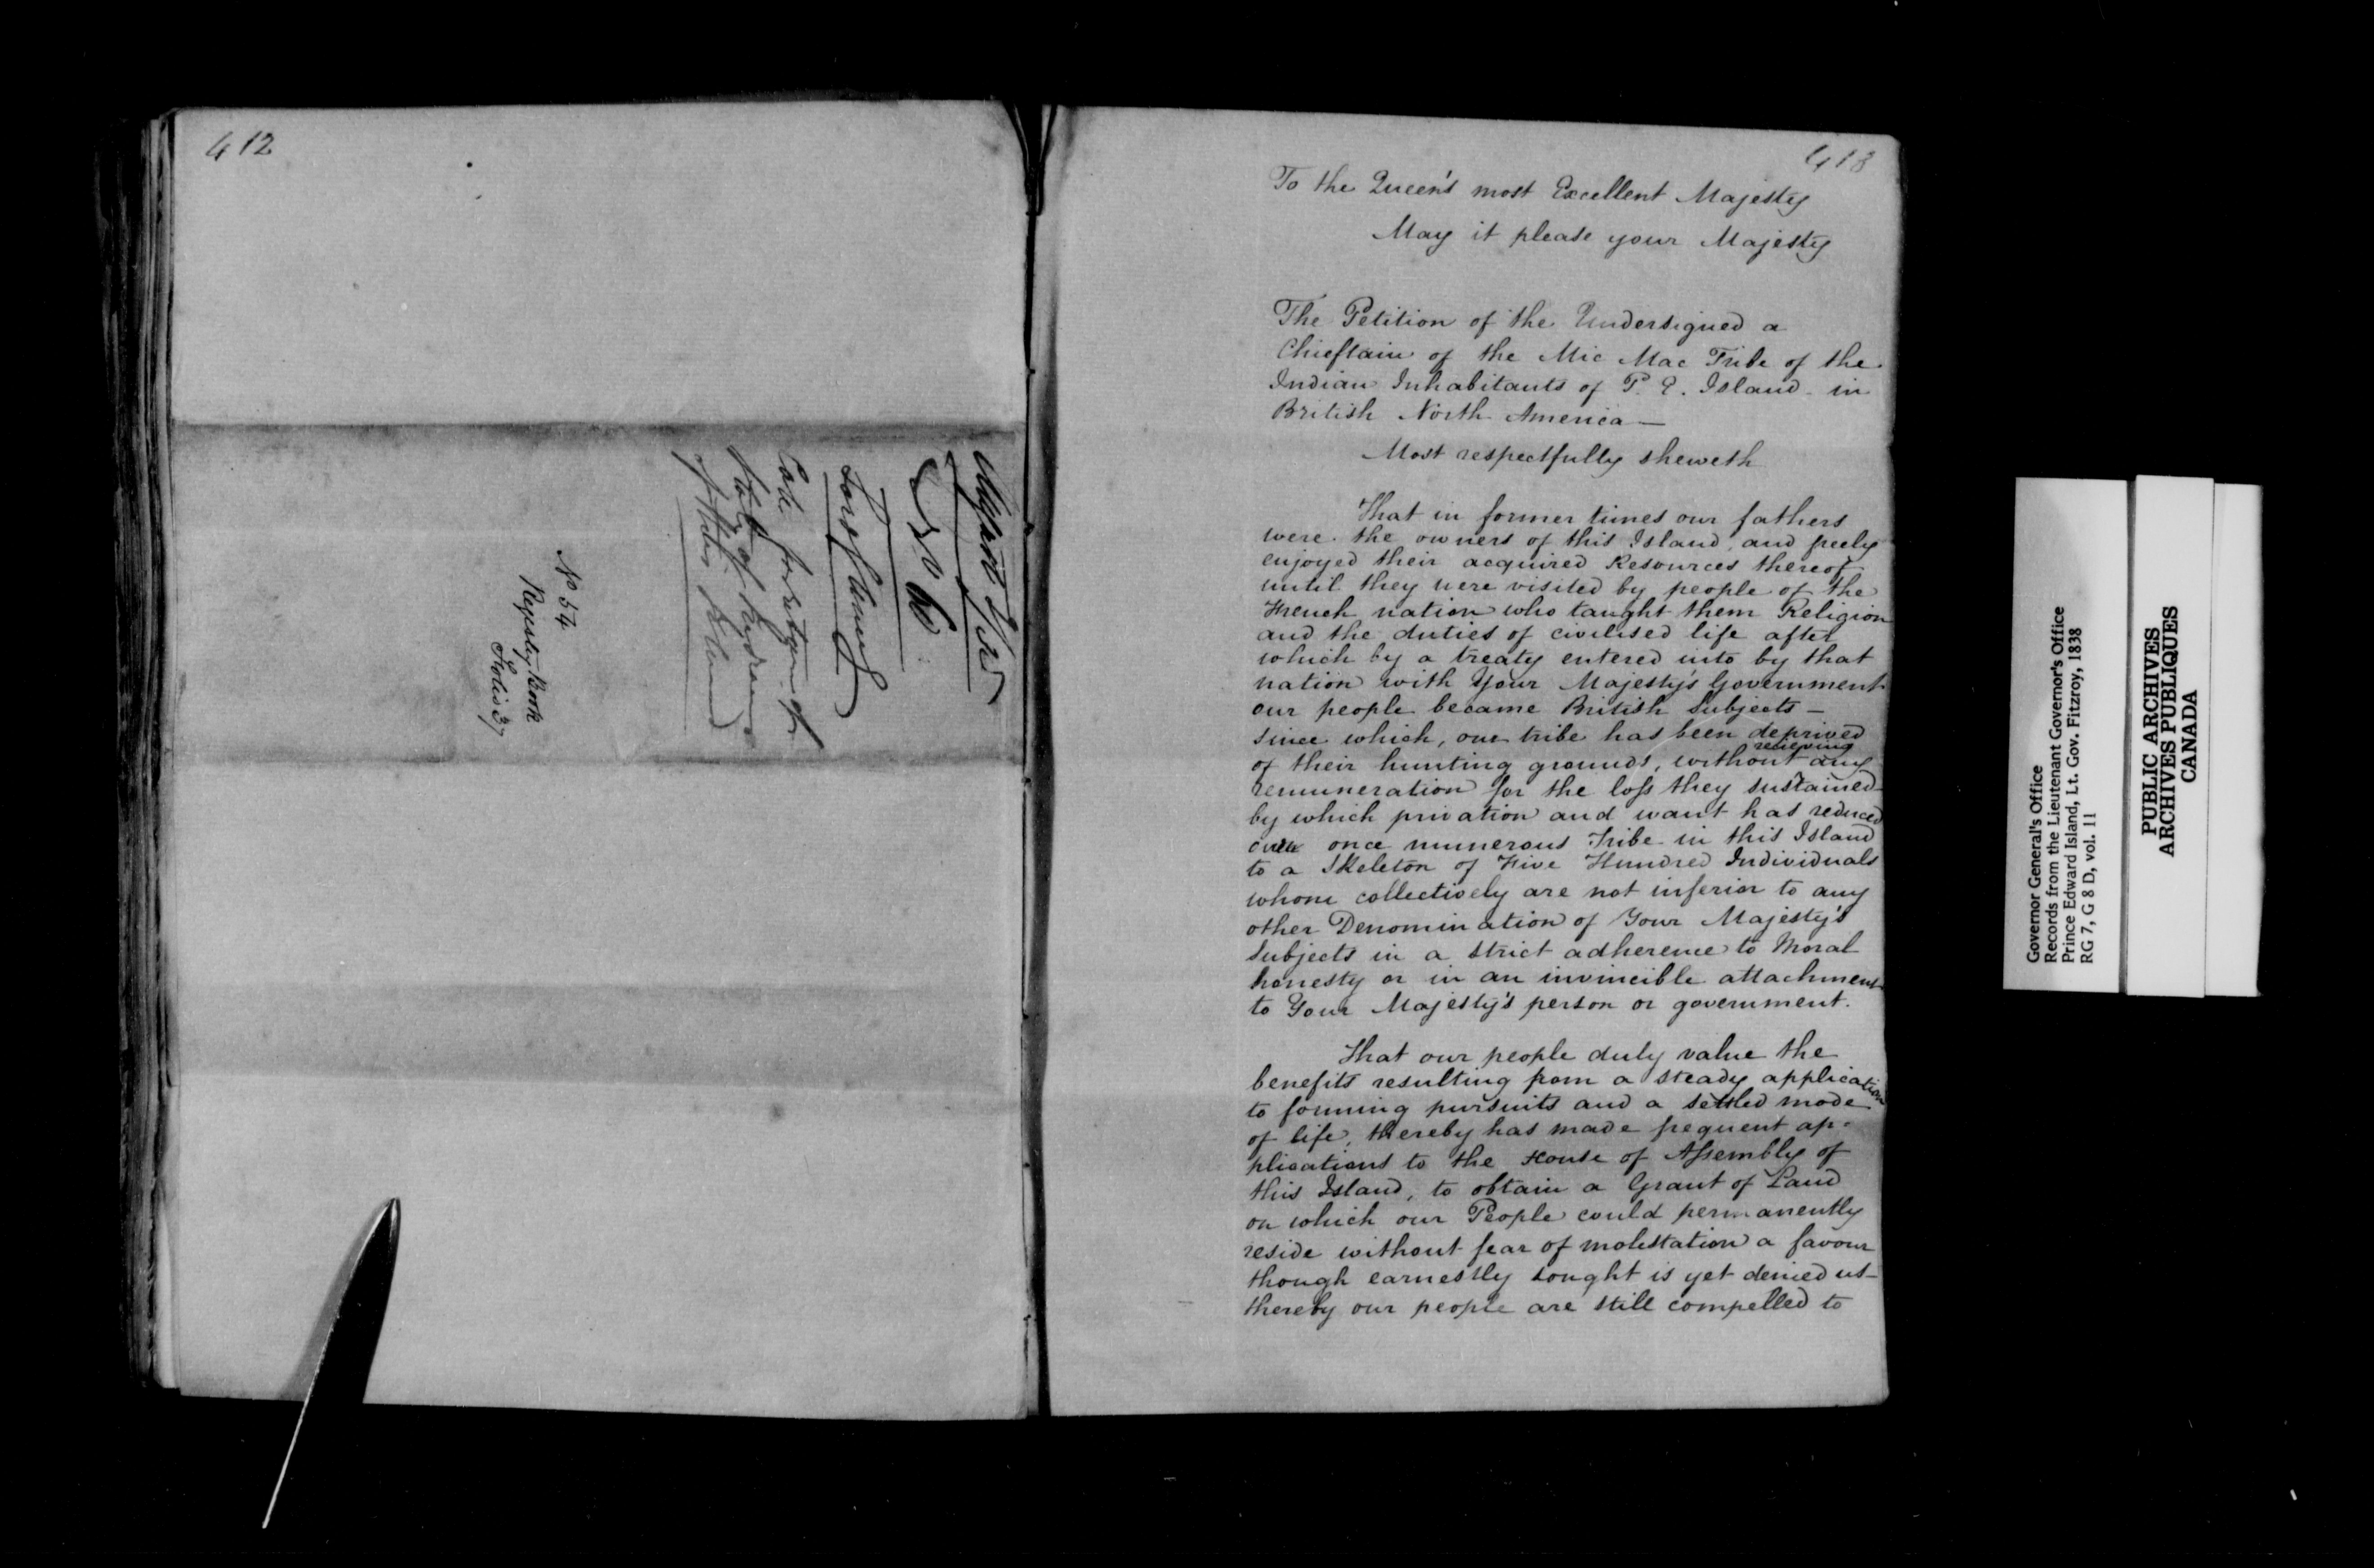 412
No 54
Registry Book
Folio 37
413
To the Queen's most Excellent Majesty
May it please your Majesty
The Petition of the Undersigned a
Chieftain of the Mic Mac Tribe of the
Indian Inhabitants of P. E. Island in
British North America —
Most respectfully sheweth
That in former times our fathers
were the owners of this Island, and freely
enjoyed their acquired Resources thereof
until they were visited by people of the
French nation who taught them Religion
and the duties of civilised life after
which by a treaty entered into by that
nation with Your Majesty's Government
our people became British Subjects —
since which, our tribe has been deprived
receiving
of their hunting grounds, without any
remuneration for the loss they sustained
by which privation and want has reduced
our once numerous Tribe in this Island
to a Skeleton of Five Hundred Individuals
whom collectively are not inferior to any
other Denomination of Your Majesty's
subjects in a strict adherence to Moral
honesty or in an invincible attachment
to Your Majesty's person or government.
That our people duly value the
benefits resulting from a steady application
to farming pursuits and a settled mode
of life, thereby has made frequent ap-
plications to the House of Assembly of
this Island, to obtain a Grant of Land
on which our People could permanently
reside without fear of molestation a favour
though earnestly sought is yet denied us —
thereby our people are still compelled to
Governor General's Office
Records from the Lieutenant Governor's Office
Prince Edward Island, Lt. Gov. Fitzroy, 1838
RG 7, G 8 D, vol. 11
PUBLIC ARCHIVES
ARCHIVES PUBLIQUES
CANADA